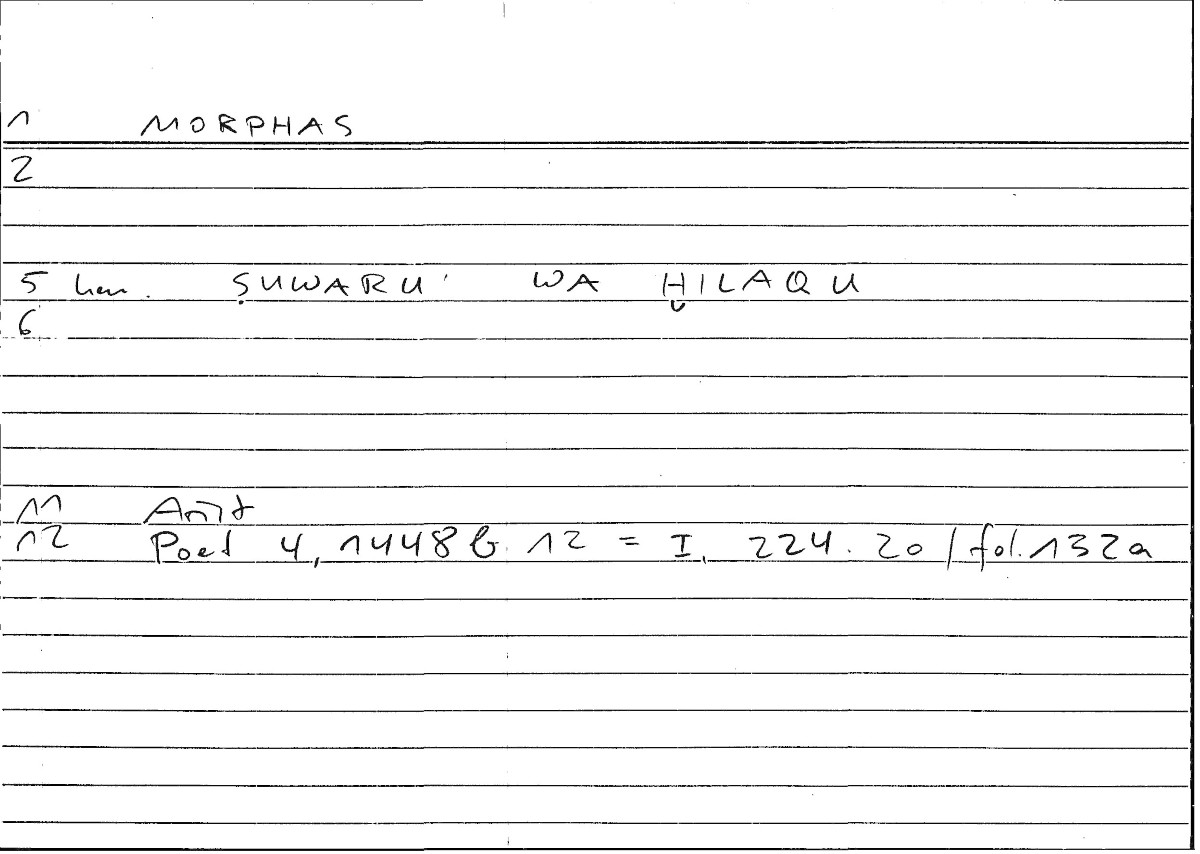 1 MORPHAS
2
5 hen. ṢUWARU' WA ḪILAQU
6
11 Arist
12 Poet 4, 1448b.12 = I, 224.20 / fol. 132a